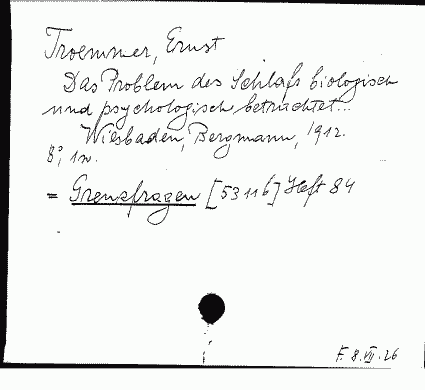 Troemner, Ernst
Das Problem des Schlafs biologisch
und psychologisch betrachtet...
Wiesbaden, Bergmann, 1912.
8°, 1n.
= Grenzfragen [53116] Heft 84
F. 8.VII.26